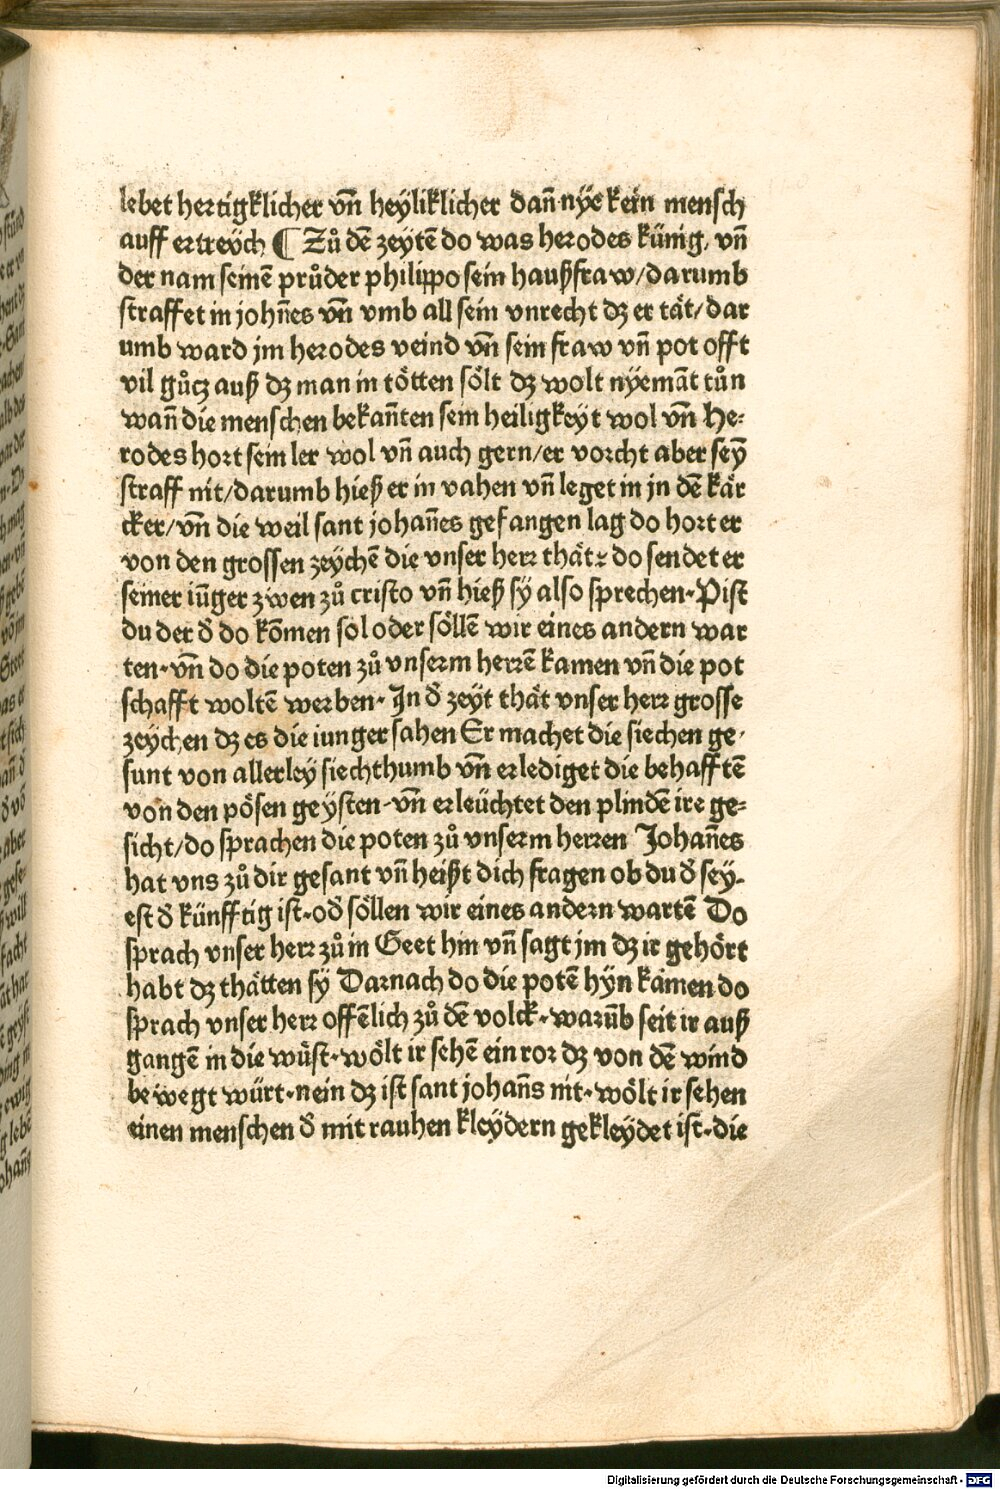 lebet hertigklicher vn̄ heyliklicher dan̄ nÿe kein mensch
auff ertreÿch ¶ Zů dē zeytē do was herodes künig, vn̄
der nam seinē průder philippo sein haußfraw/darumb
straffet in joh̄nes vn̄ vmb all sein vnrecht dʒ er tät/dar
umb ward jm herodes veind vn̄ sein fraw vn̄ pot offt
vil gůcz auß dʒ man in tötten sölt dʒ wolt nÿemāt tůn
wan̄ die menschen bekan̄ten sein heiligkeÿt wol vn̄ He⸗
rodes hort sein ler wol vn̄ auch gern/er vorcht aber seÿ
straff nit/darumb hieß er in vahen vn̄ leget in jn dē kär
cker/vn̄ die weil sant johan̄es gefangen lag do hort er
von den grossen zeÿchē die vnser herr thät: do sendet er
seiner iün̄ger zwen zů cristo vn̄ hieß sÿ also sprechen·Pist
du der d̄ do kōmen sol oder söllē wir eines andern war
ten·vn̄ do die poten zů vnserm herrē kamen vn̄ die pot
schafft woltē werben·In d̄ zeyt thät vnser herr grosse
zeÿchen dʒ es die iunger sahen Er machet die siechen ge⸗
sunt von allerleÿ siechthumb vn̄ erlediget die behafftē
von den pösen geÿsten·vn̄ erleüchtet den plindē ire ge⸗
sicht/do sprachen die poten zů vnserm herren Johan̄es
hat vns zů dir gesant vn̄ heißt dich fragen ob du d̄ seÿ⸗
est d̄ künfftig ist·od̄ söllen wir eines andern wartē Do
sprach vnser herr zů in Geet hin vn̄ sagt jm dʒ ir gehört
habt dʒ thätten sÿ Darnach do die potē hÿn kamen do
sprach vnser herr offēlich zů dē volck·warūb seit ir auß
gangē in die wüst·wölt ir sehē ein ror dʒ von dē wind
bewegt würt·nein dʒ ist sant johan̄s nit·wölt ir sehen
einen menschen d̄ mit rauhen kleÿdern gekleÿdet ist·die
Digitalisierung gefördert durch die Deutsche Forschungsgemeinschaft - DFG